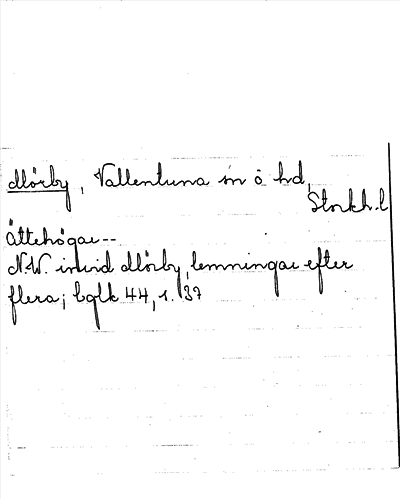 Mörby, Vallentuna sn o hd,
Stockh. l
Ättehögar --
N.W. invid Mörby, lemningar efter
flera; bglk 44, s. 37